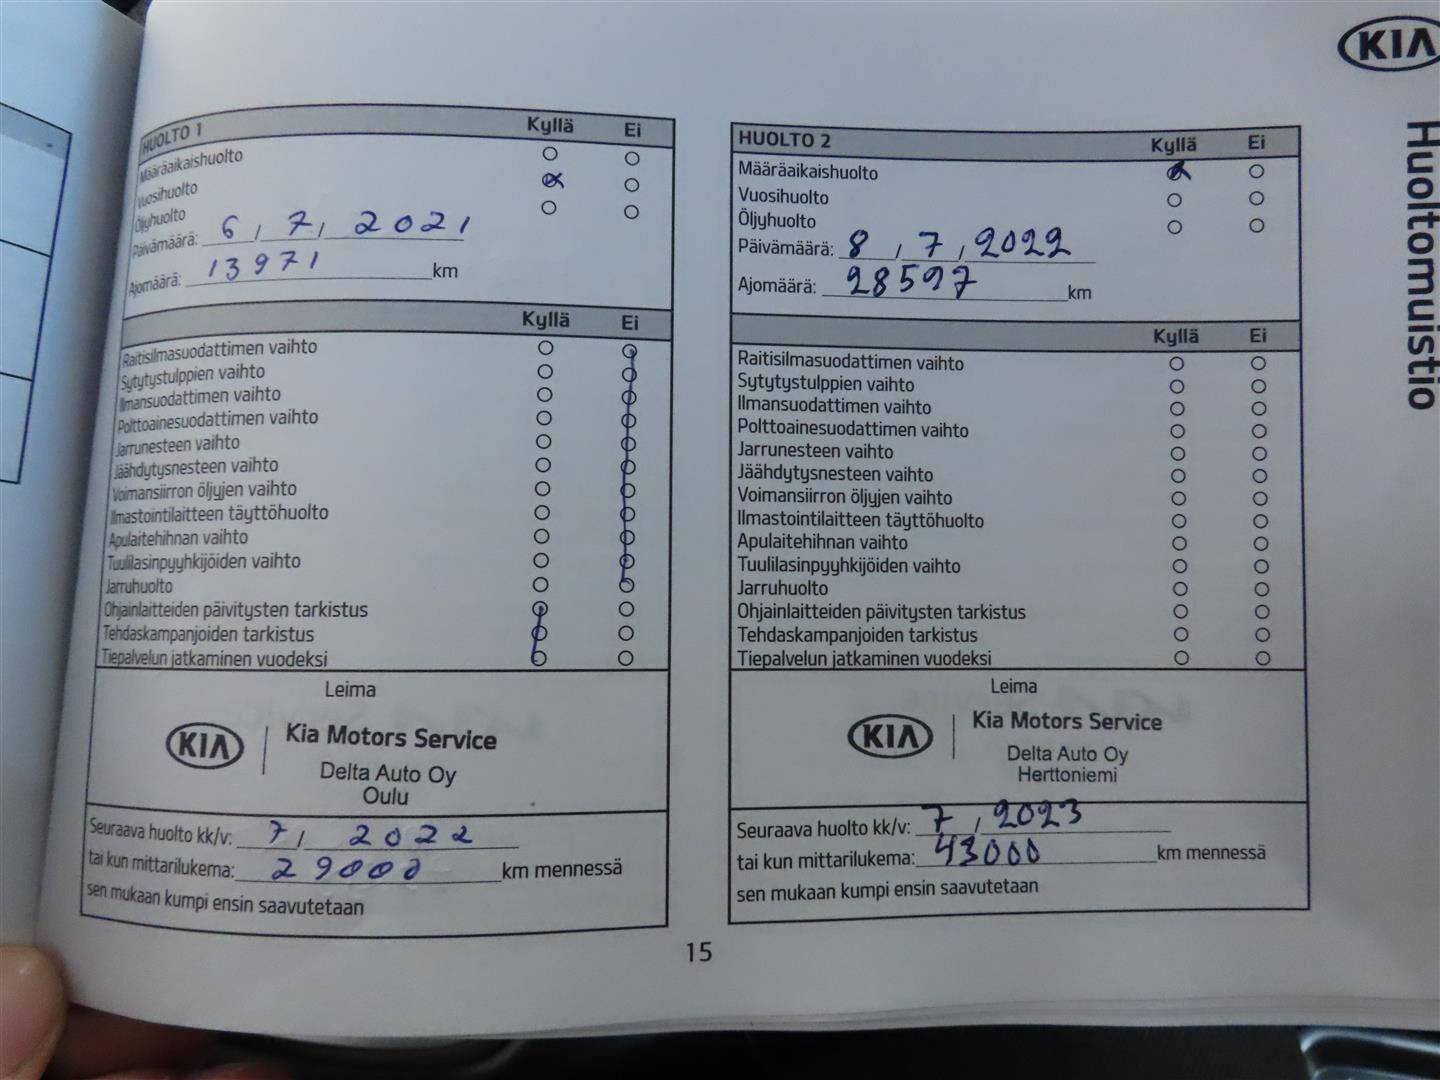 KIA
Huoltomuistio
HUOLTO 1 Kyllä Ei
Määräaikaishuolto
Vuosihuolto
Öljyhuolto
Päivämäärä: 6 / 7 / 2021
Ajomäärä: 13971 km
Kyllä Ei
Raitisilmasuodattimen vaihto
Sytytystulppien vaihto
Ilmansuodattimen vaihto
Polttoainesuodattimen vaihto
Jarrunesteen vaihto
Jäähdytysnesteen vaihto
Voimansiirron öljyjen vaihto
Ilmastointilaitteen täyttöhuolto
Apulaitehihnan vaihto
Tuulilasinpyyhkijöiden vaihto
Jarruhuolto
Ohjainlaitteiden päivitysten tarkistus
Tehdaskampanjoiden tarkistus
Tiepalvelun jatkaminen vuodeksi
Leima
KIA Kia Motors Service
Delta Auto Oy
Oulu
Seuraava huolto kk/v: 7 / 2022
tai kun mittarilukema: 29000 km mennessä
sen mukaan kumpi ensin saavutetaan
HUOLTO 2 Kyllä Ei
Määräaikaishuolto
Vuosihuolto
Öljyhuolto
Päivämäärä: 8 / 7 / 2022
Ajomäärä: 28597 km
Kyllä Ei
Raitisilmasuodattimen vaihto
Sytytystulppien vaihto
Ilmansuodattimen vaihto
Polttoainesuodattimen vaihto
Jarrunesteen vaihto
Jäähdytysnesteen vaihto
Voimansiirron öljyjen vaihto
Ilmastointilaitteen täyttöhuolto
Apulaitehihnan vaihto
Tuulilasinpyyhkijöiden vaihto
Jarruhuolto
Ohjainlaitteiden päivitysten tarkistus
Tehdaskampanjoiden tarkistus
Tiepalvelun jatkaminen vuodeksi
Leima
KIA Kia Motors Service
Delta Auto Oy
Herttoniemi
Seuraava huolto kk/v: 7 / 2023
tai kun mittarilukema: 43000 km mennessä
sen mukaan kumpi ensin saavutetaan
15